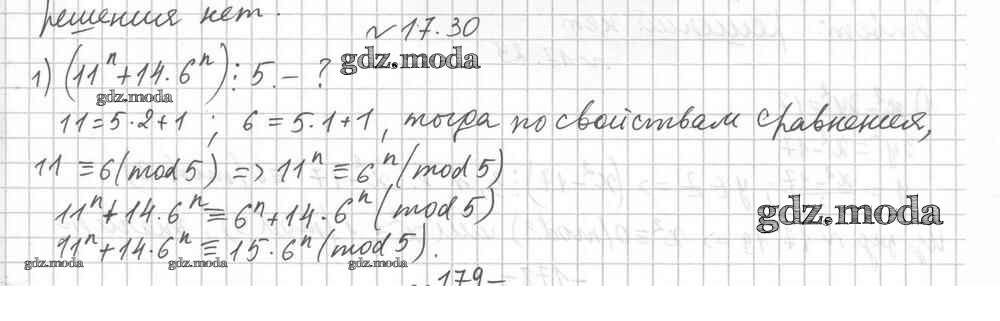 решения нет.
№17.30
gdz.moda
1) (11ⁿ+14·6ⁿ)⋮5 - ?
gdz.moda
11=5·2+1 ; 6=5·1+1, тогда по свойствам сравнения,
11≡6(mod5) => 11ⁿ≡6ⁿ(mod5)
11ⁿ+14·6ⁿ≡6ⁿ+14·6ⁿ(mod5)
gdz.moda
11ⁿ+14·6ⁿ≡15·6ⁿ(mod5).
gdz.moda gdz.moda gdz.moda
179-